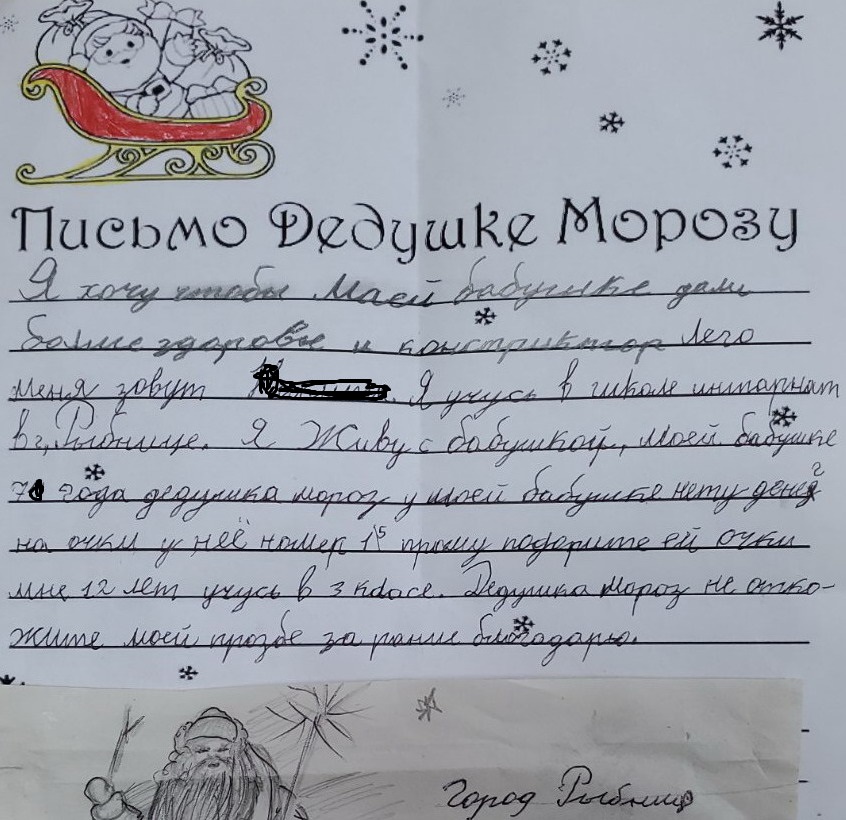 Письмо Дедушке Морозу
Я хочу чтобы Маей бабушке дали
болше здоровье и констриктор Лего
меня зовут Я учусь в школе интарнат
в г, Рыбнице. Я Живу с бабушкой, моей бабушке
71 года дедушка мороз у моей бабушке нету денег
на очки у неё номер 1⁵ прошу подарите ей очки
мне 12 лет учусь в 3 класе. Дедушка мороз не отко-
жите моей прозбе за рание благодарю.
Город Рыбница